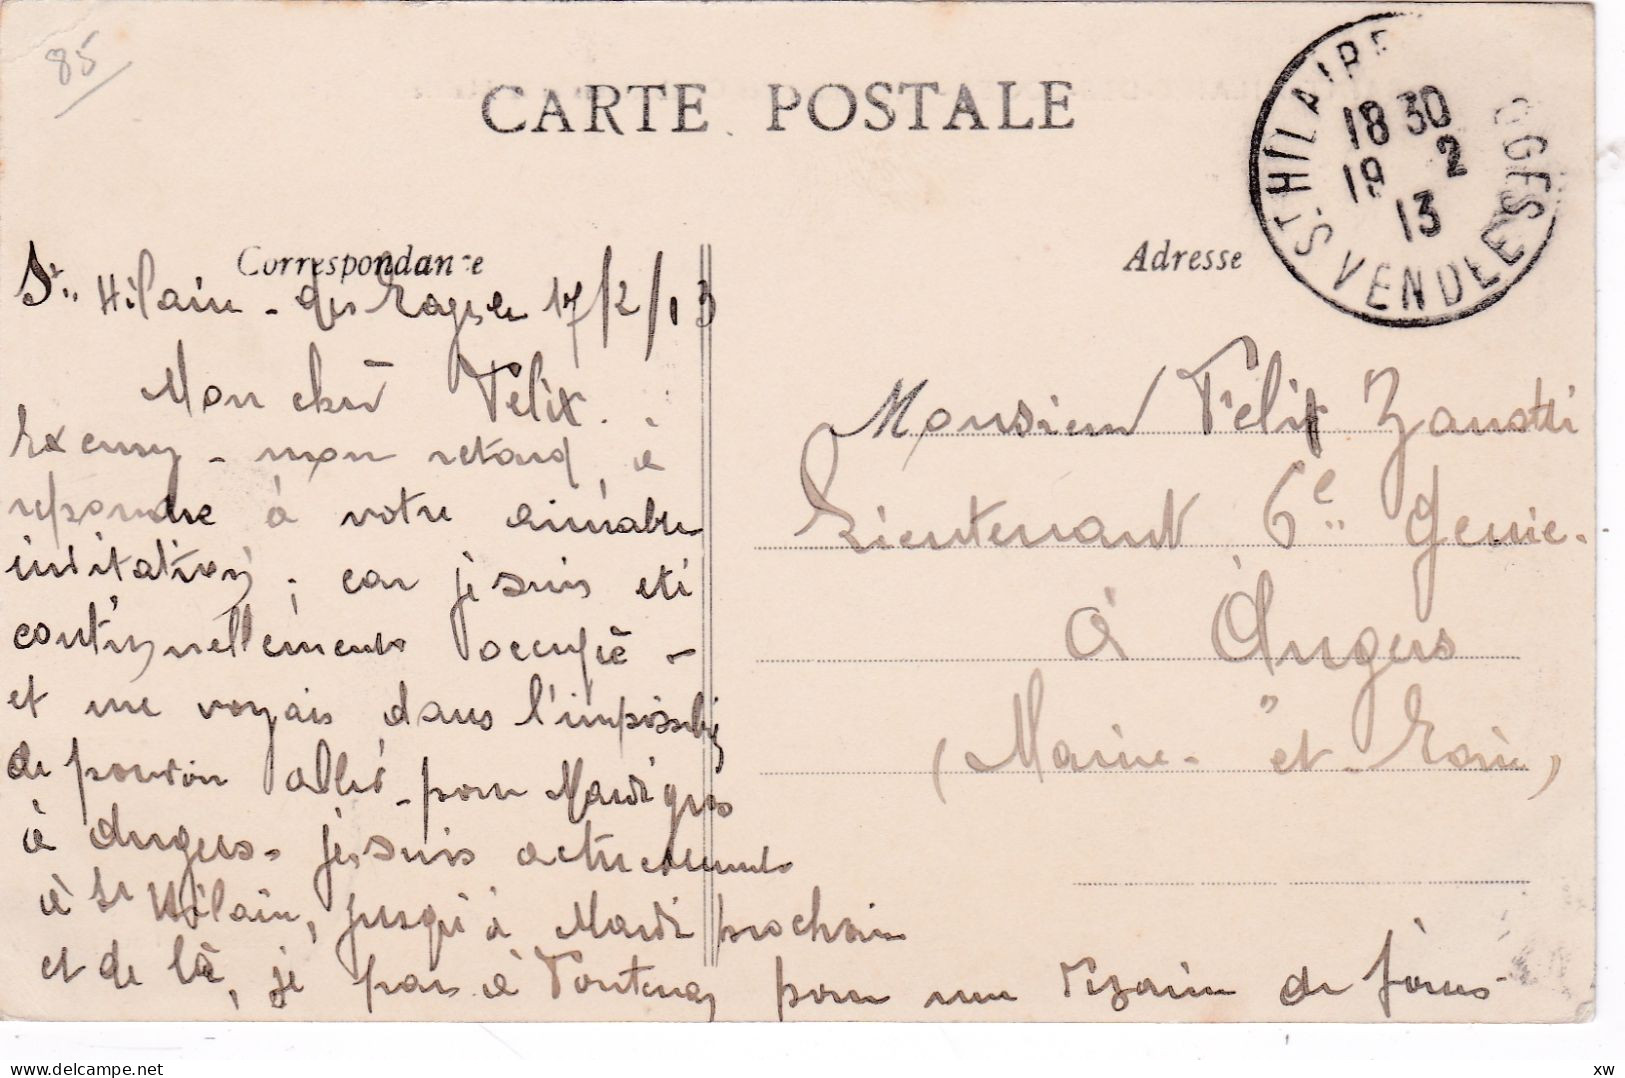 85
CARTE POSTALE
ST HILAIRE OGES
18 30
19 2
13
VENDEE
Correspondance
Adresse
St. Hilaire - des Loges le 17/2/13
Mon cher Félix.
Excusez - mon retard à
repondre à votre aimable
invitation; car je suis eté
continuellement occupé -
et me voyais dans l'impossibi
de pouvoir aller - pour Mardi gras
à Angers. je suis actuellement
à St Hilaire, jusqu'à Mardi prochain
et de là, je pars à Fontenay pour une dizaine de jours -
Monsieur Félix Zanotti
Lieutenant 6e Genie.
à Angers
(Maine - et - Loire)
www.delcampe.net
xw